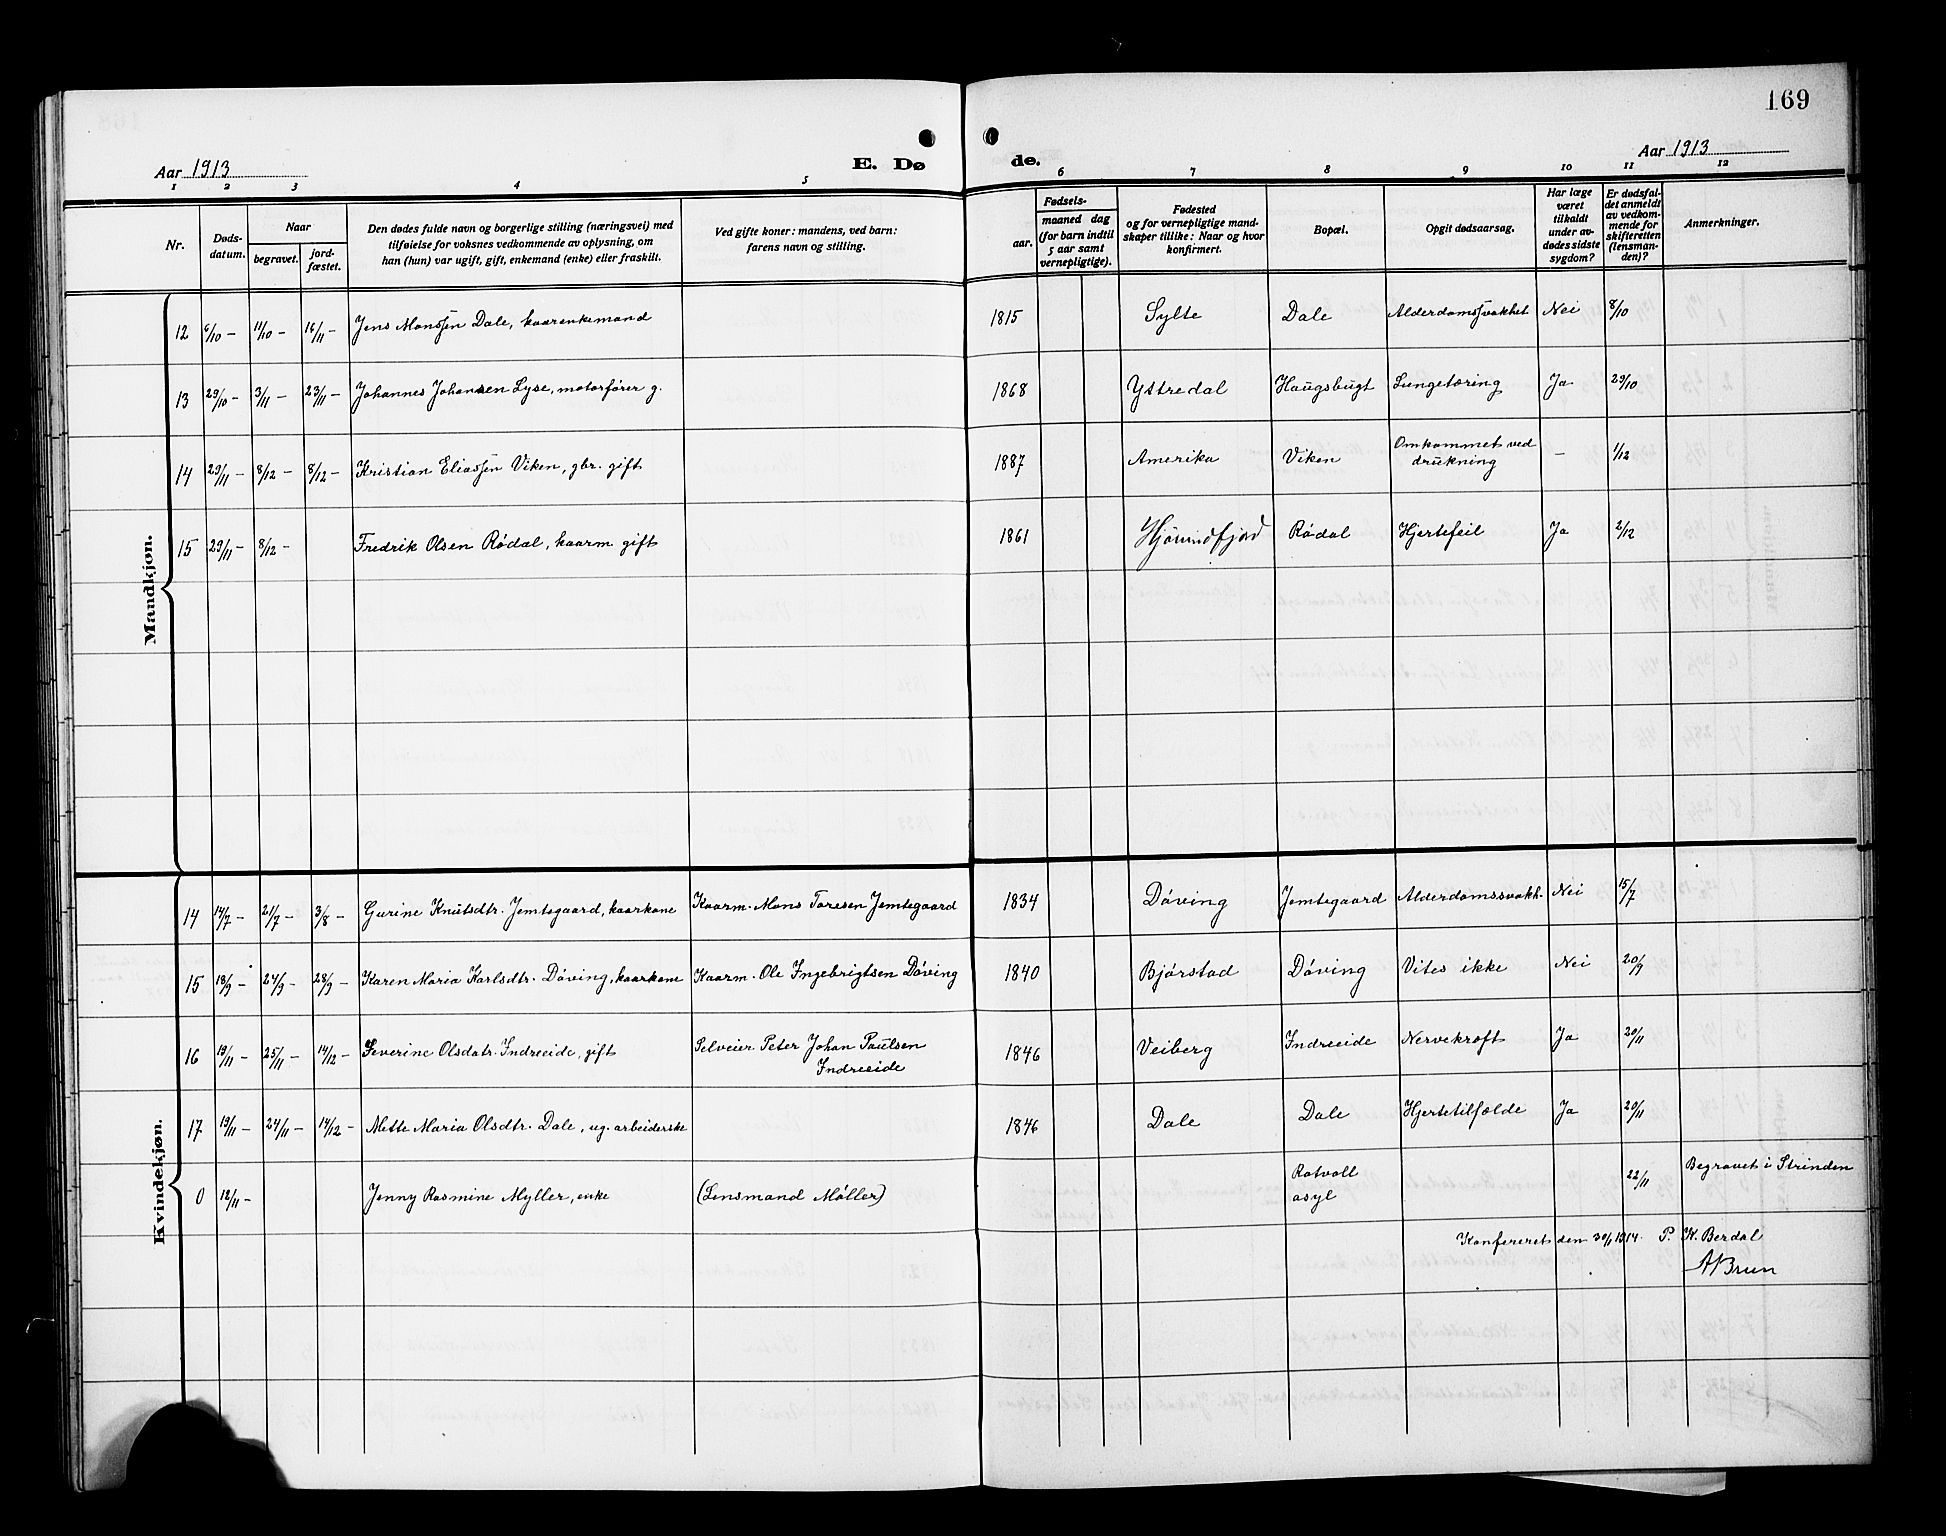 169
Aar 1913
E. Dø
de.
Aar 1913
1 2 3 4 5 6 7 8 9 10 11 12
Nr.
Døds-
datum.
Naar
begravet.
jord-
fæstet.
Den dødes fulde navn og borgerlige stilling (næringsvei) med
tilføielse for voksnes vedkommende av oplysning, om
han (hun) var ugift, gift, enkemand (enke) eller fraskilt.
Ved gifte koner: mandens, ved barn:
farens navn og stilling.
Fødsels-
aar.
maaned dag
(for barn indtil
5 aar samt
vernepligtige).
Fødested
og for vernepligtige mand-
skaper tillike: Naar og hvor
konfirmert.
Bopæl.
Opgit dødsaarsag.
Har læge
været
tilkaldt
under av-
dødes sidste
sygdom?
Er dødsfal-
det anmeldt
av vedkom-
mende for
skifteretten
(lensman-
den)?
Anmerkninger.
Mandkjøn.
12 6/10 – 11/10 – 16/11 – Jens Monssen Dale, kaarenkemand 1815 Sylte Dale Alderdomssvakhet Nei 8/10
13 29/10 – 3/11 – 23/11 – Johannes Johansen Lyse, motorfører g. 1868 Ystredal Haugsbugt Lungetæring Ja 29/10
14 29/11 – 8/12 – 8/12 – Kristian Eliassen Viken, gbr. gift 1887 Amerika Viken Omkommet ved
drukning – 1/12
15 29/11 – 8/12 – Fredrik Olsen Rødal, kaarm. gift 1861 Hjørundfjord Rødal Hjertefeil Ja 2/12
Kvindekjøn.
14 14/7 – 21/7 – 3/8 – Gurine Knutsdtr. Jemtegaard, kaarkone Kaarm. Mons Toresen Jemtegaard 1834 Døving Jemtegaard Alderdomssvakh. Nei 15/7
15 18/9 – 24/9 – 28/9 – Karen Maria Karlsdtr. Døving, kaarkone Kaarm. Ole Ingebrigtsen Døving 1840 Bjørstad Døving Vites ikke Nei 20/9
16 19/11 – 25/11 – 14/12 – Severine Olsdatr. Indreeide, gift Selveier Peter Johan Paulsen
Indreeide 1846 Veiberg Indreeide Nervekræft Ja 20/11
17 19/11 – 24/11 – 14/12 – Mette Maria Olsdtr. Dale, ug. arbeiderske 1846 Dale Dale Hjertetilfælde Ja 20/11
0 12/11 – Jenny Rasmine Myller, enke (Lensmand Møller) Rotvoll
asyl 22/11 Begravet i Strinden
Konfereret den 30/1 1914. P. K. Berdal
ABrun